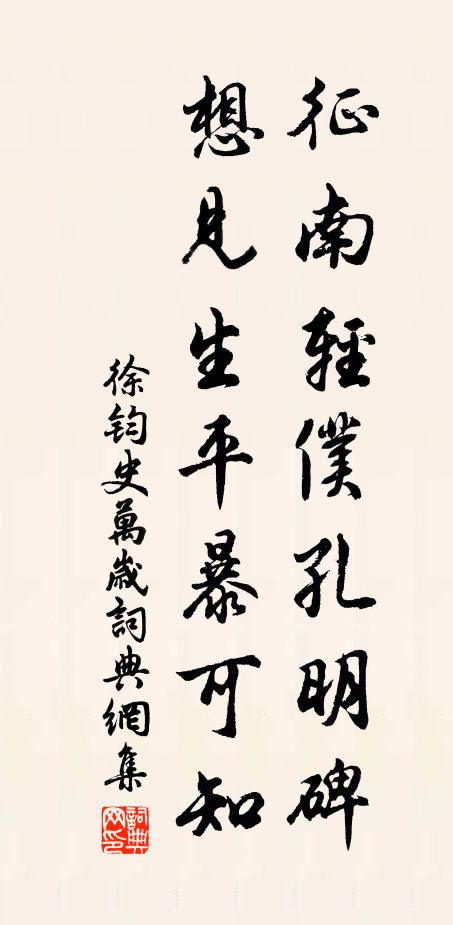 征南輕僕孔明碑
想見生平暴可知
徐鈞史萬歲詞典網集
詞典網印